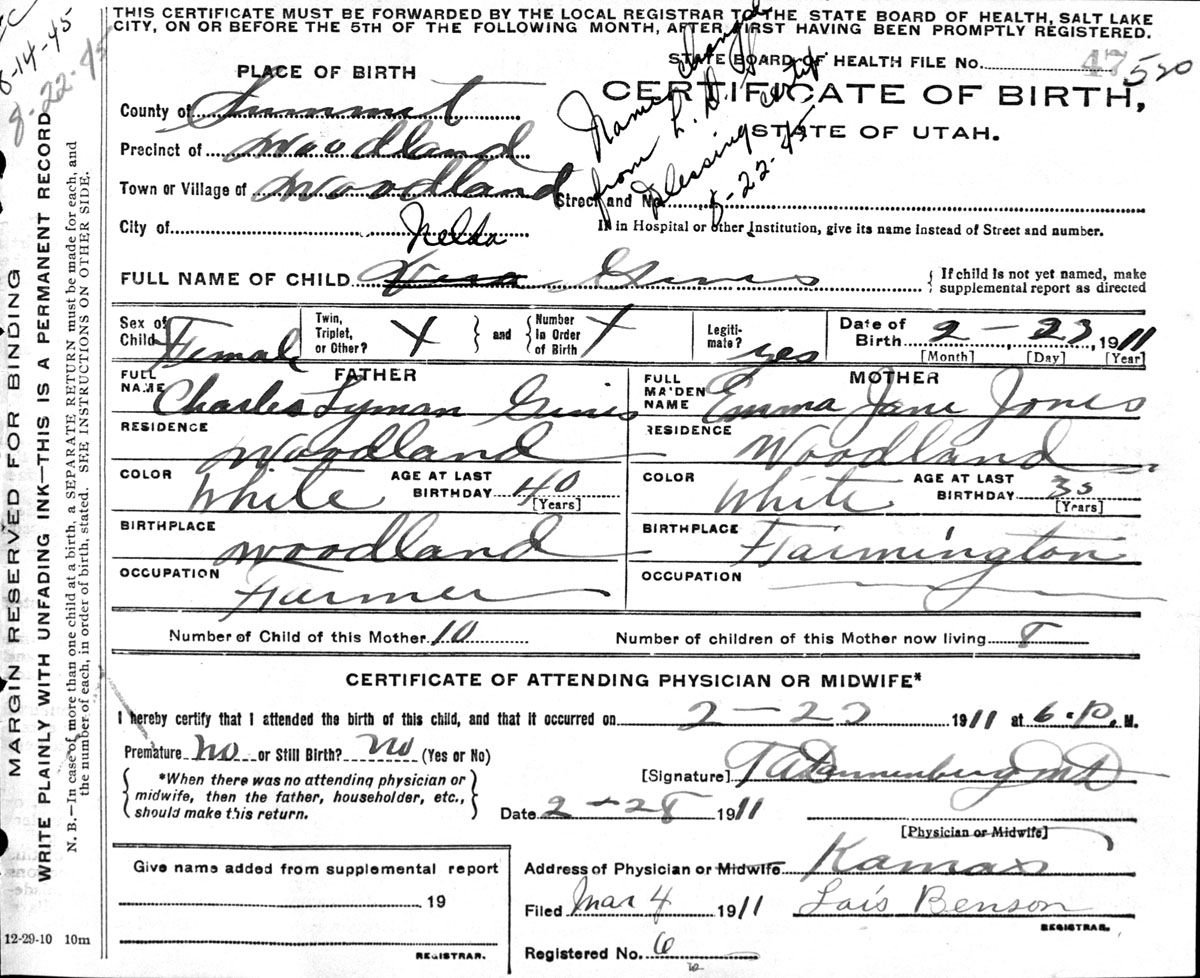 THIS CERTIFICATE MUST BE FORWARDED BY THE LOCAL REGISTRAR TO THE STATE BOARD OF HEALTH, SALT LAKE
CITY, ON OR BEFORE THE 5TH OF THE FOLLOWING MONTH, AFTER FIRST HAVING BEEN PROMPTLY REGISTERED.
8-14-45
8-22-45
STATE BOARD OF HEALTH FILE No. 47 520
PLACE OF BIRTH
CERTIFICATE OF BIRTH,
STATE OF UTAH.
Name change
from L. D. S.
Blessing certif
8-22-45
County of Summit
Precinct of Woodland
Town or Village of Woodland Street and No.
City of
If in Hospital or other Institution, give its name instead of Street and number.
Nelda
FULL NAME OF CHILD Gines
If child is not yet named, make
supplemental report as directed
Sex of Child Female
Twin, Triplet, or Other? X and Number in Order of Birth X
Legitimate? yes
Date of Birth 2 - 23 1911
[Month] [Day] [Year]
FATHER
FULL NAME Charles Lyman Gines
RESIDENCE Woodland
COLOR White AGE AT LAST BIRTHDAY 40
[Years]
BIRTHPLACE Woodland
OCCUPATION Farmer
MOTHER
FULL MAIDEN NAME Emma Jane Jones
RESIDENCE Woodland
COLOR White AGE AT LAST BIRTHDAY
[Years]
BIRTHPLACE Farmington
OCCUPATION
Number of Child of this Mother 10 Number of children of this Mother now living 8
CERTIFICATE OF ATTENDING PHYSICIAN OR MIDWIFE*
I hereby certify that I attended the birth of this child, and that it occurred on 2-23 1911 at 6 P. M.
Premature No or Still Birth? No (Yes or No)
*When there was no attending physician or
midwife, then the father, householder, etc.,
should make this return.
[Signature] Dannenberg MD
Date 2-28 1911
[Physician or Midwife]
Give name added from supplemental report
19
REGISTRAR.
Address of Physician or Midwife Kamas
Filed Mar 4 1911 Lois Benson
REGISTRAR.
Registered No. 6
12-29-10 10m
MARGIN RESERVED FOR BINDING
WRITE PLAINLY WITH UNFADING INK—THIS IS A PERMANENT RECORD
N. B.—In case of more than one child at a birth, a SEPARATE RETURN must be made for each, and
the number of each, in order of birth, stated. SEE INSTRUCTIONS ON OTHER SIDE.